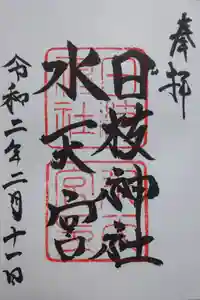 奉拝
日枝神社
水天宮
令和二年二月十一日